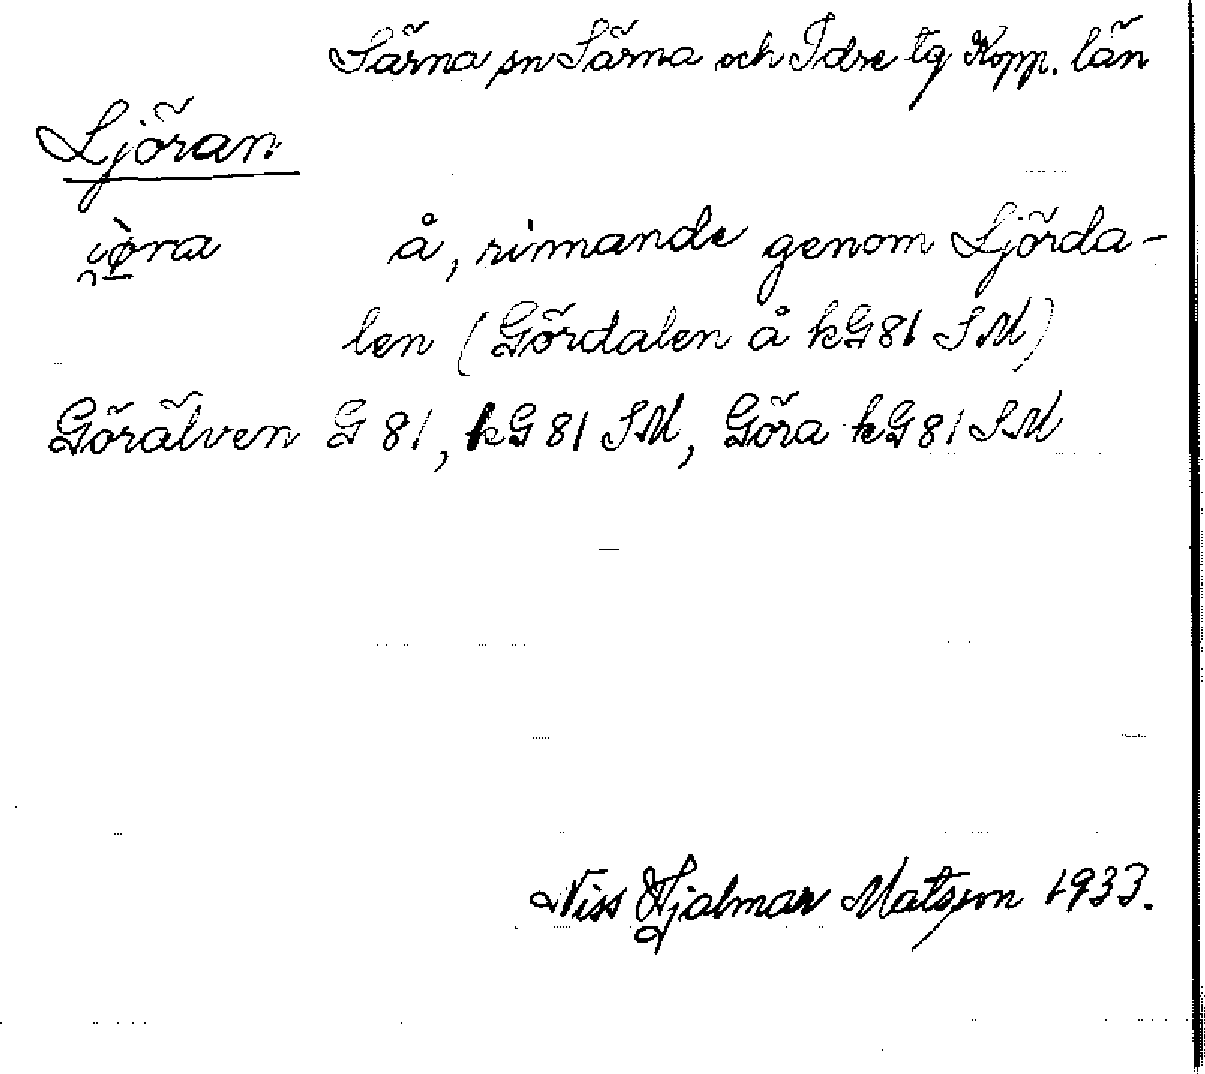 Särna sn Särna och Idre tg Kopp. län
Ljöran
å, rinnande genom Ljörda-
len (Gördalen å kG81 SM)
Görälven G 81, kG 81 SM, Göra kG81 SM
Niss Hjalmar Matsson 1933.